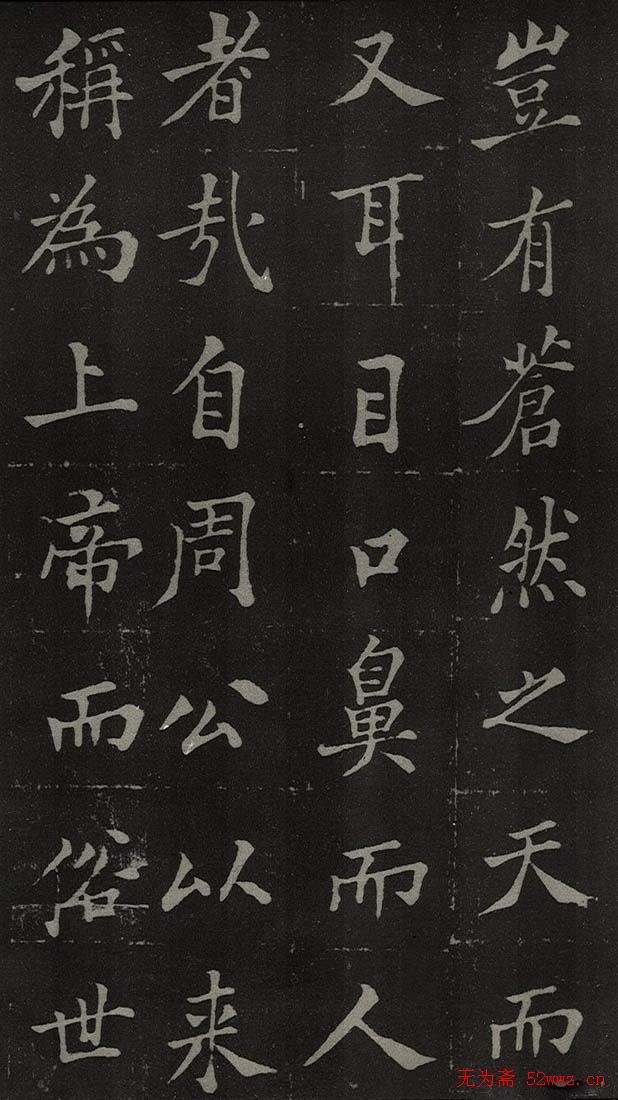 豈有蒼然之天而
又耳目口鼻而人
者㢤自周公以来
稱為上帝而俗世
无为斋 52wwz.cn